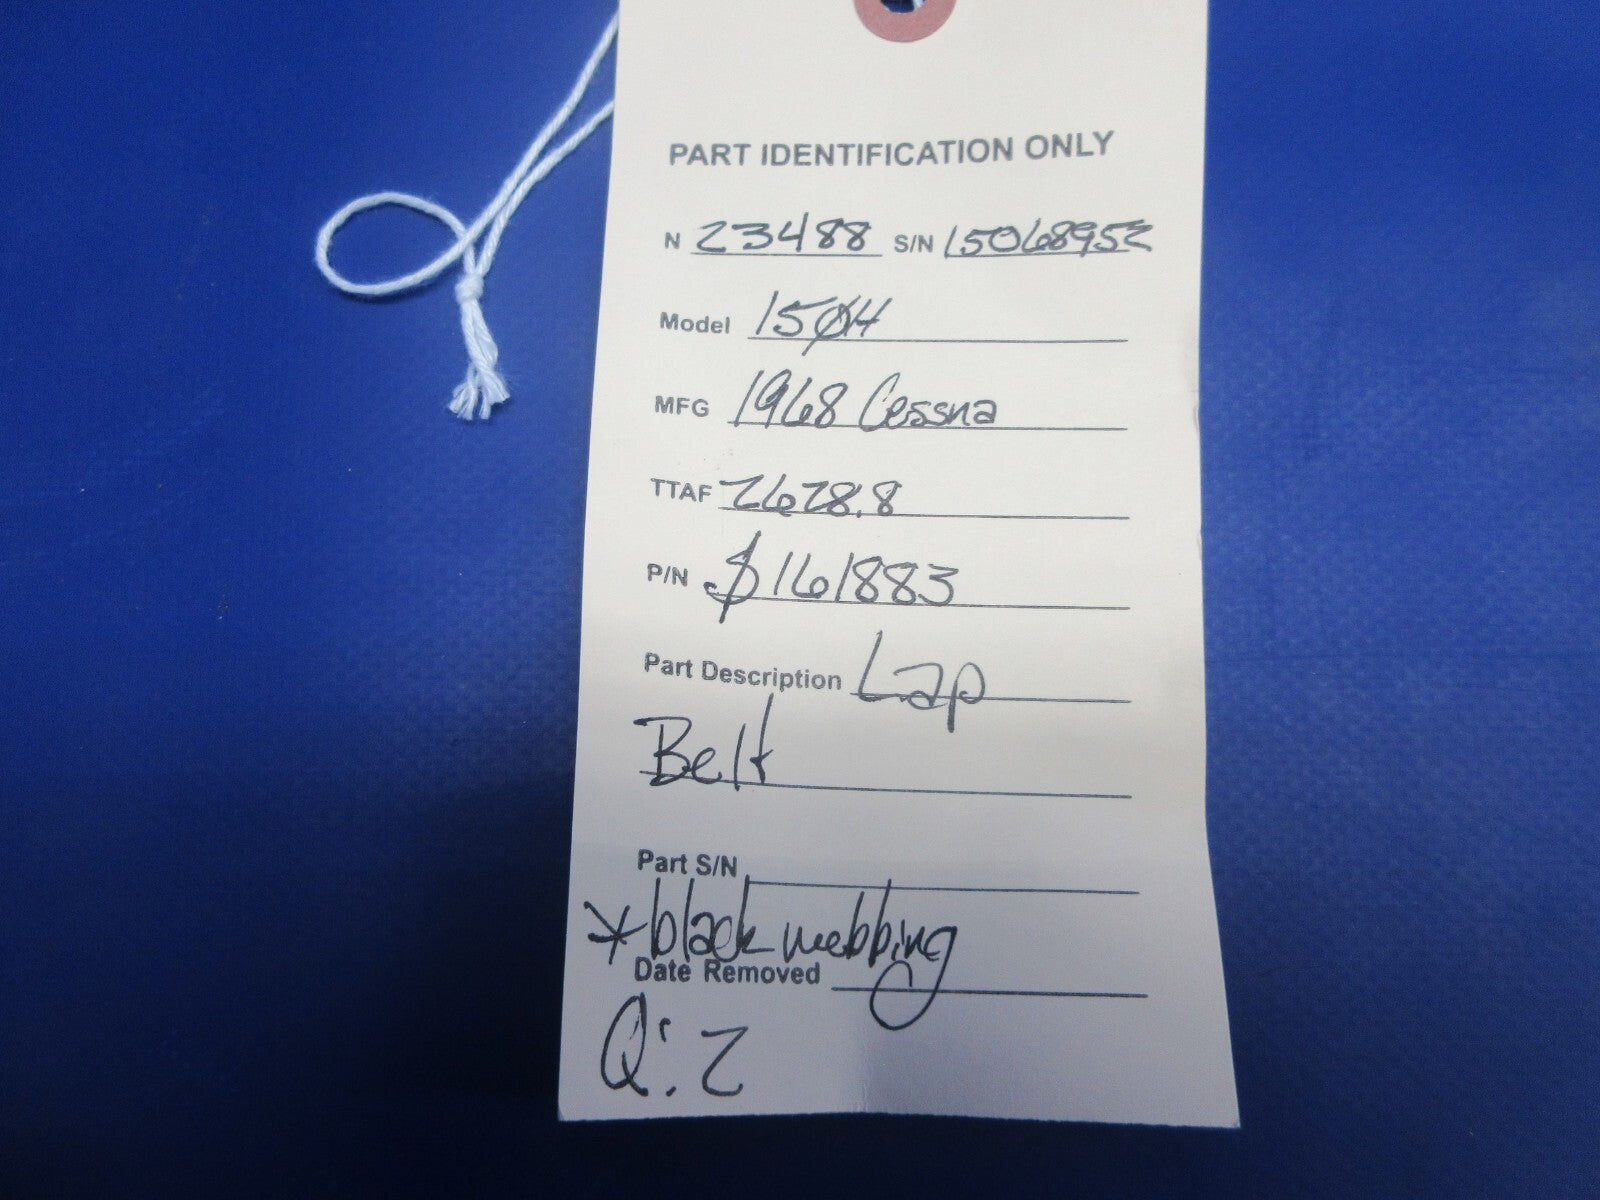 PART IDENTIFICATION ONLY
N 23488 S/N 15068952
Model 150H
MFG 1968 Cessna
TTAF 2628.8
P/N S161883
Part Description Lap
Belt
Part S/N
*black webbing
Date Removed
Q: 2